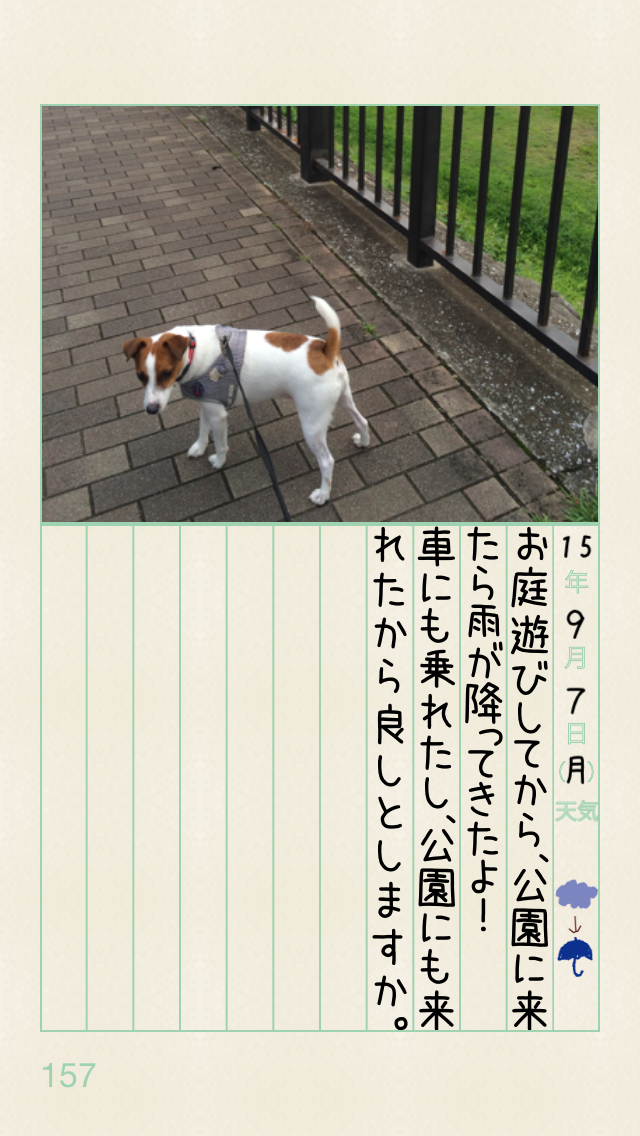 15年9月7日(月)天気
お庭遊びしてから、公園に来
たら雨が降ってきたよ！
車にも乗れたし、公園にも来
れたから良しとしますか。
157